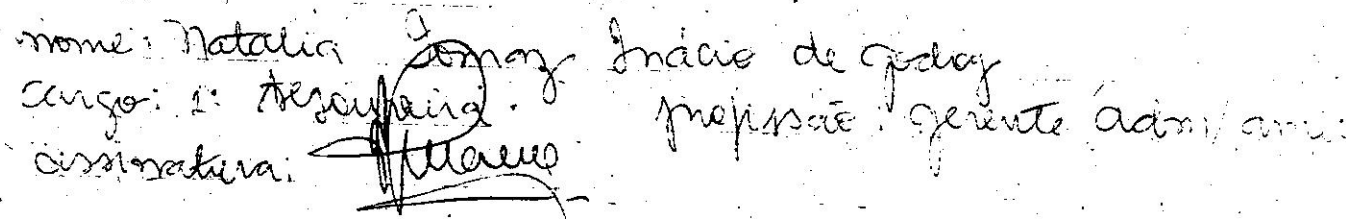 nome: Natalia Tomaz Inácio de Godoy
cargo: 1ª Tesoureira. profissão: gerente adm/
assinatura: